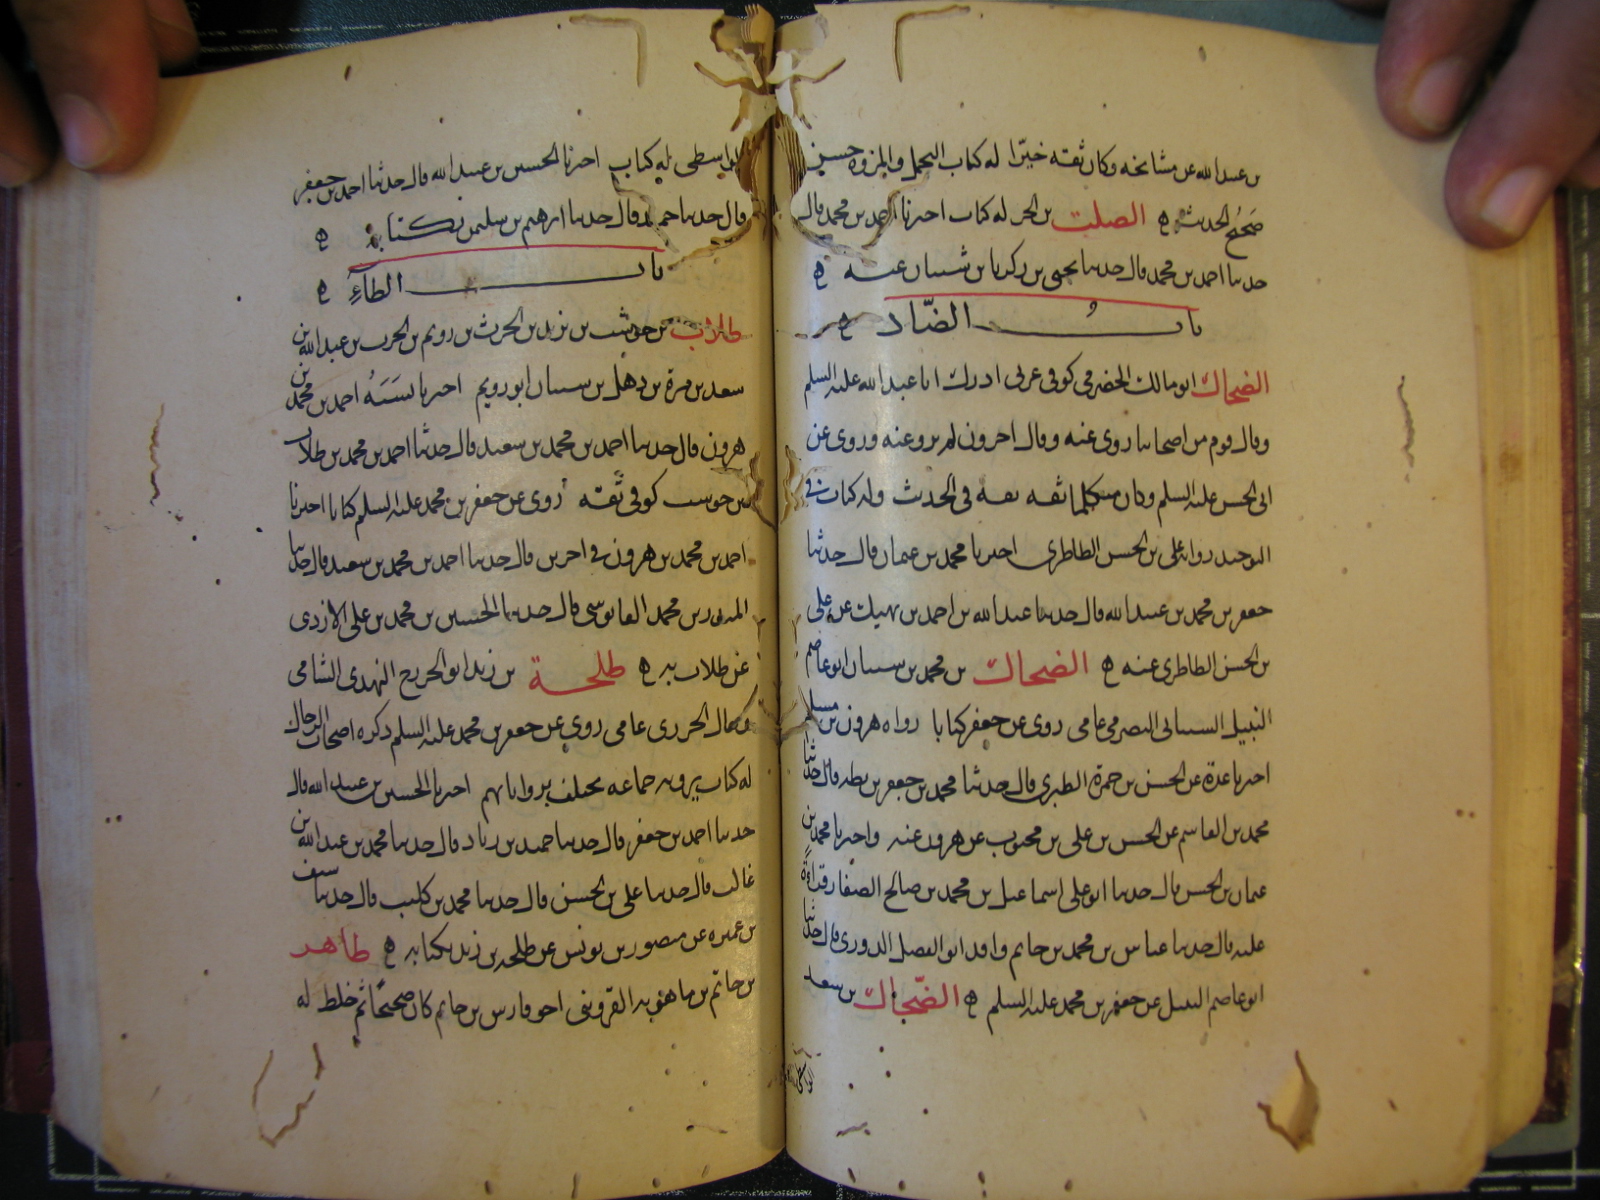 بن عبدالله عن مشايخه وكان ثقه خيرًا له كتاب التجمل والمروه حسين
صحيح الحديث ه الصلت بن الحر له كتاب اخبرنا احمد بن محمد قال
حدثنا احمد بن محمد قال حدثنا يحيى بن زكريا بن شيبان عنه ه
باب الضّاد ه
الضحاك ابو مالك الحضرمى كوفى عربى ادرك ابا عبدالله عليه السلم
وقال قوم من اصحابنا روى عنه وقال اخرون لم يرو عنه وروى عن
ابى الحسن عليه السلم وكان متكلما ثقه ثقه فى الحديث وله كتاب فى
التوحيد روايه على بن الحسن الطاطرى اخبرنا محمد بن عثمان قال حدثنا
جعفر بن محمد بن عبيدالله قال حدثنا عبيدالله بن احمد بن نهيك عن على
بن الحسن الطاطرى عنه ه الضحاك بن محمد بن شيبان ابو عاصم
النبيل الشيبانى البصرى عامى روى عن جعفر كتابا رواه هرون بن مسلم
اخبرنا عدة عن الحسن بن حمزة الطبرى قال حدثنا محمد بن جعفر بن بطه قال حدثنا
محمد بن القاسم عن الحسن بن على بن محبوب عن هرون عنه واخبرنا محمد بن
عثمان بن الحسن قال حدثنا ابو على اسماعيل بن محمد بن صالح الصفار قراءةً
عليه قال حدثنا عباس بن محمد بن حاتم واقد ابو الفضل الدورى قال حدثنا
ابو عاصم النبيل عن جعفر بن محمد عليه السلم ه الضّحاك بن سعد
الواسطى له كتاب اخبرنا الحسين بن عبيدالله قال حدثنا احمد بن جعفر
قال حدثنا حميد قال حدثنا ابرهيم بن سليمن بكتابه ه
باب الطاءِ ه
طلاب بن حوشب بن يزيد بن الحرث بن رويم بن الحرث بن عبدالله بن
سعد بن مرة بن ذهل بن شيبان ابو رويم اخبرنا بنسَبَهُ احمد بن محمد بن
هرون قال حدثنا احمد بن محمد بن سعيد قال حدثنا احمد بن محمد بن طلاب
بن حوشب كوفى ثقه روى عن جعفر بن محمد عليه السلم كتابا اخبرنا
احمد بن محمد بن هرون فى اخرين قال حدثنا احمد بن محمد بن سعيد قال حدثنا
المنذر بن محمد القابوسى قال حدثنا الحسين بن محمد بن على الازدى
عن طلاب به ه طلحة بن زيد ابو الخزرج النهدى الشامى
ويقال الخزرى عامى روى عن جعفر بن محمد عليه السلم ذكره اصحاب الرجال
له كتاب يرويه جماعه يختلف برواياتهم اخبرنا الحسين بن عبيدالله قال
حدثنا احمد بن جعفر قال حدثنا حميد بن زياد قال حدثنا محمد بن عبدالله بن
غالب قال حدثنا على بن الحسن قال حدثنا محمد بن كليب قال حدثنا سيف
بن عميره عن منصور بن يونس عن طلحه بن زيد بكتابه ه طاهر
بن حاتم بن ماهويه القزوينى اخو فارس بن حاتم كان صحيحًا ثم خلط له